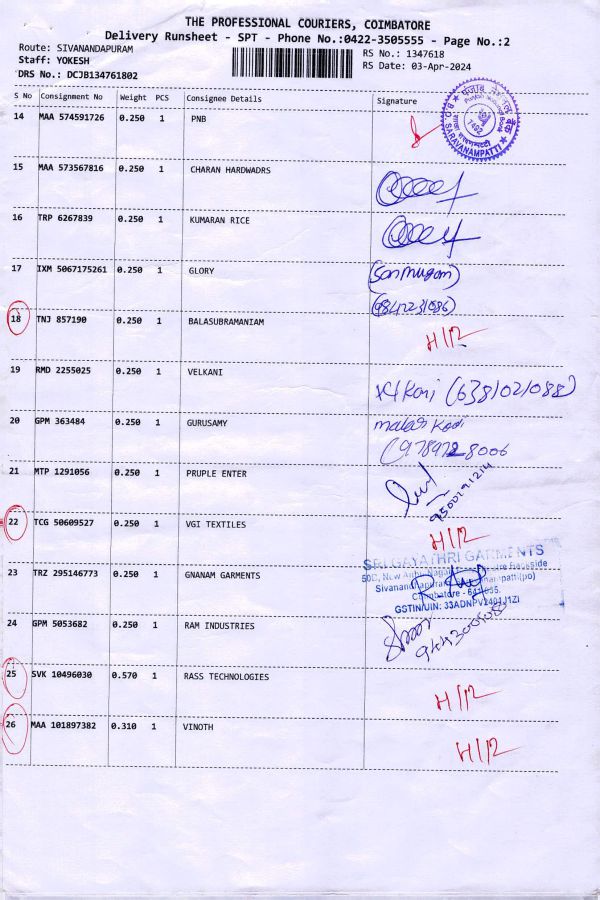 THE PROFESSIONAL COURIERS, COIMBATORE
Delivery Runsheet - SPT - Phone No.:0422-3505555 - Page No.:2
Route: SIVANANDAPURAM
RS No.: 1347618
Staff: YOKESH
RS Date: 03-Apr-2024
DRS No.: DCJB134761802
S No Consignment No Weight PCS Consignee Details Signature
14 MAA 574591726 0.250 1 PNB
15 MAA 573567816 0.250 1 CHARAN HARDWADRS
16 TRP 6267839 0.250 1 KUMARAN RICE
17 IXM 5067175261 0.250 1 GLORY (Sanmugam)
(9842231086)
18 TNJ 857190 0.250 1 BALASUBRAMANIAM H/12
19 RMD 2255025 0.250 1 VELKANI (6381021088)
20 GPM 363484 0.250 1 GURUSAMY malar Kodi
(978972 8006
21 MTP 1291056 0.250 1 PRUPLE ENTER
22 TCG 50609527 0.250 1 VGI TEXTILES H/12
SRI GAYATHRI GARMENTS
23 TRZ 295146773 0.250 1 GNANAM GARMENTS
Coimbatore - 641 035.
24 GPM 5053682 0.250 1 RAM INDUSTRIES
25 SVK 10496030 0.570 1 RASS TECHNOLOGIES H/12
26 MAA 101897382 0.310 1 VINOTH H/12